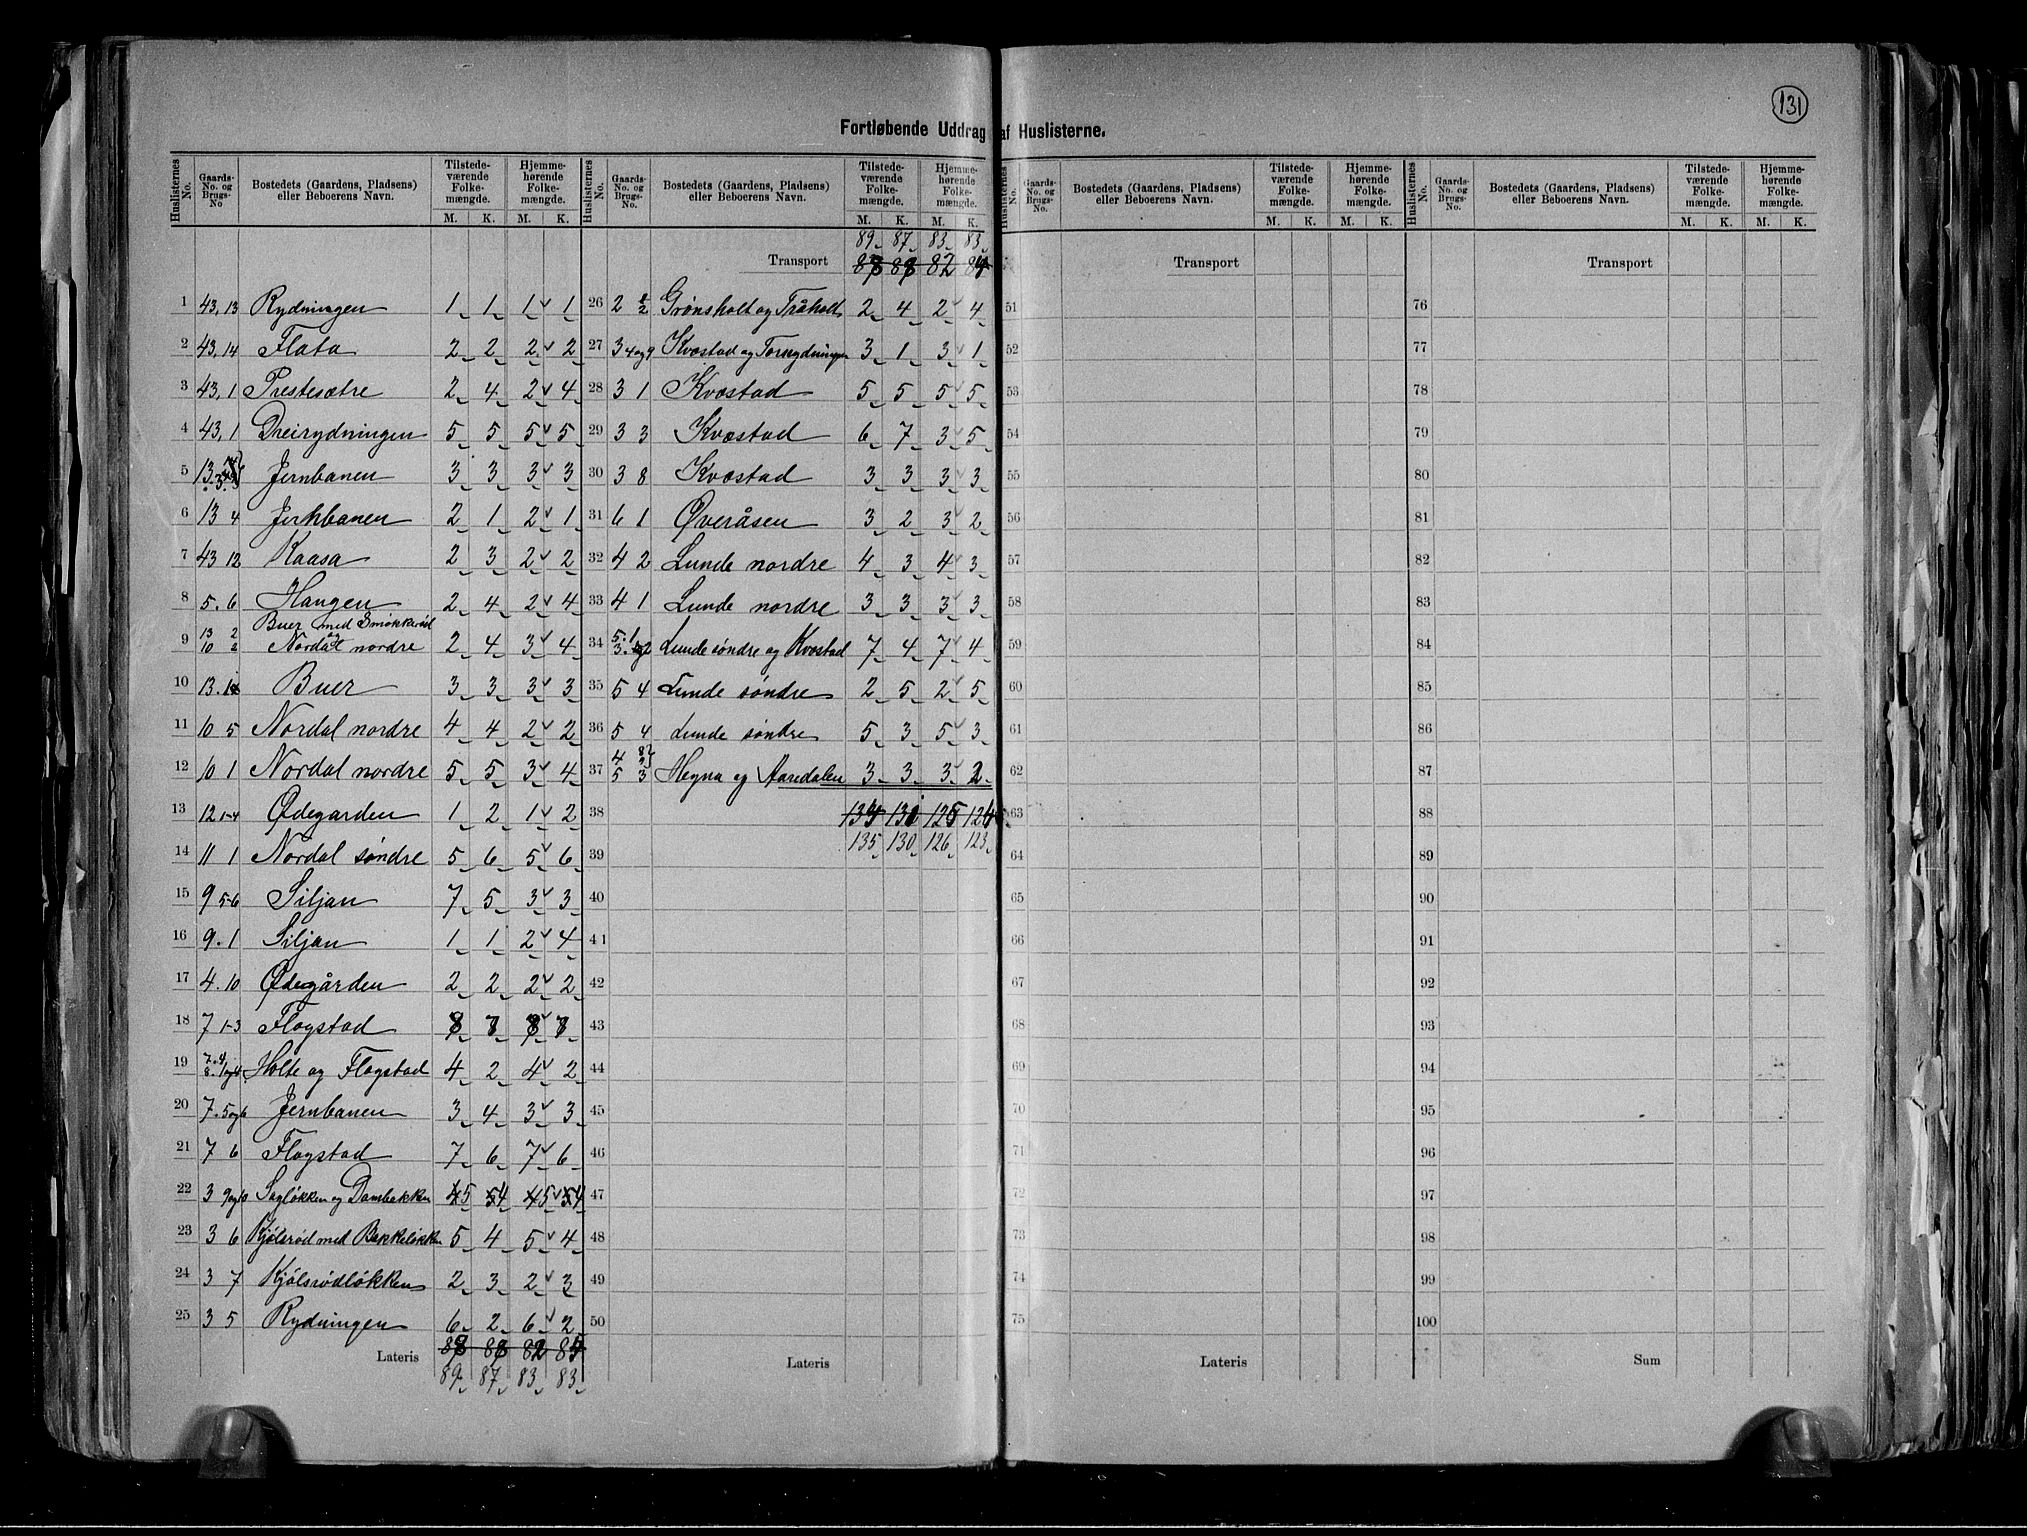 131
Fortløbende Uddrag af Huslisterne.
Huslisternes No. | Gaards-No. og Brugs-No. | Bostedets (Gaardens, Pladsens) eller Beboerens Navn. | Tilstedeværende Folkemængde. M. K. | Hjemmehørende Folkemængde. M. K.
1 43,13 Rydningen 1 1 1 1
2 43,14 Flata 2 2 2 2
3 43,1 Prestesætre 2 4 2 4
4 43,1 Dreirydningen 5 5 5 5
5 13 Jernbanen 3 3 3 3
6 13 4 Jernbanen 2 1 2 1
7 43 12 Kaasa 2 3 2 2
8 5.6 Haugen 2 4 2 4
9 13 2 10 2 Buer med Smokkerød og Nordal nordre 2 4 3 4
10 13.1 Buer 3 3 3 3
11 10 5 Nordal nordre 4 4 2 2
12 10 1 Nordal nordre 5 5 3 4
13 12 1-4 Ødegarden 1 2 1 2
14 11 1 Nordal søndre 5 6 5 6
15 9 5-6 Siljan 7 5 3 3
16 9.1 Siljan 1 1 2 4
17 4.10 Ødegården 2 2 2 2
18 7 1-3 Flogstad 8 7 8 7
19 7.4 8.1og4 Holte og Flogstad 4 2 4 2
20 7.5og6 Jernbanen 3 4 3 3
21 7 6 Flogstad 7 6 7 6
22 3 9og10 Sagløkken og Dambakken 45 54 45 54
23 3 6 Kjølsrød med Bakkeløkken 5 4 5 4
24 3 7 Kjølsrødløkken 2 3 2 3
25 3 5 Rydningen 6 2 6 2
Lateris 88 88 82 84
89 87 83 83
Huslisternes No. | Gaards-No. og Brugs-No. | Bostedets (Gaardens, Pladsens) eller Beboerens Navn. | Tilstedeværende Folkemængde. M. K. | Hjemmehørende Folkemængde. M. K.
89 87 83 83
Transport 88 88 82 84
26 2 1 2 Grønsholt og Tråholt 2 4 2 4
27 3 4og9 Kvæstad og Tornrydningen 3 1 3 1
28 3 1 Kvæstad 5 5 5 5
29 3 3 Kvæstad 6 7 3 5
30 3 8 Kvæstad 3 3 3 3
31 6 1 Øveråsen 3 2 3 2
32 4 2 Lunde nordre 4 3 4 3
33 4 1 Lunde nordre 3 3 3 3
34 5.1 3.2 Lunde søndre og Kvæstad 7 4 7 4
35 5 4 Lunde søndre 2 5 2 5
36 5 4 Lunde søndre 5 3 5 3
37 4 5 3 Hegna og Aaredalen 3 3 3 2
38 134 131 125 124
135 130 126 123
39
40
41
42
43
44
45
46
47
48
49
50
Lateris
Huslisternes No. | Gaards-No. og Brugs-No. | Bostedets (Gaardens, Pladsens) eller Beboerens Navn. | Tilstedeværende Folkemængde. M. K. | Hjemmehørende Folkemængde. M. K.
Transport
51
52
53
54
55
56
57
58
59
60
61
62
63
64
65
66
67
68
69
70
71
72
73
74
75
Lateris
Huslisternes No. | Gaards-No. og Brugs-No. | Bostedets (Gaardens, Pladsens) eller Beboerens Navn. | Tilstedeværende Folkemængde. M. K. | Hjemmehørende Folkemængde. M. K.
Transport
76
77
78
79
80
81
82
83
84
85
86
87
88
89
90
91
92
93
94
95
96
97
98
99
100
Sum